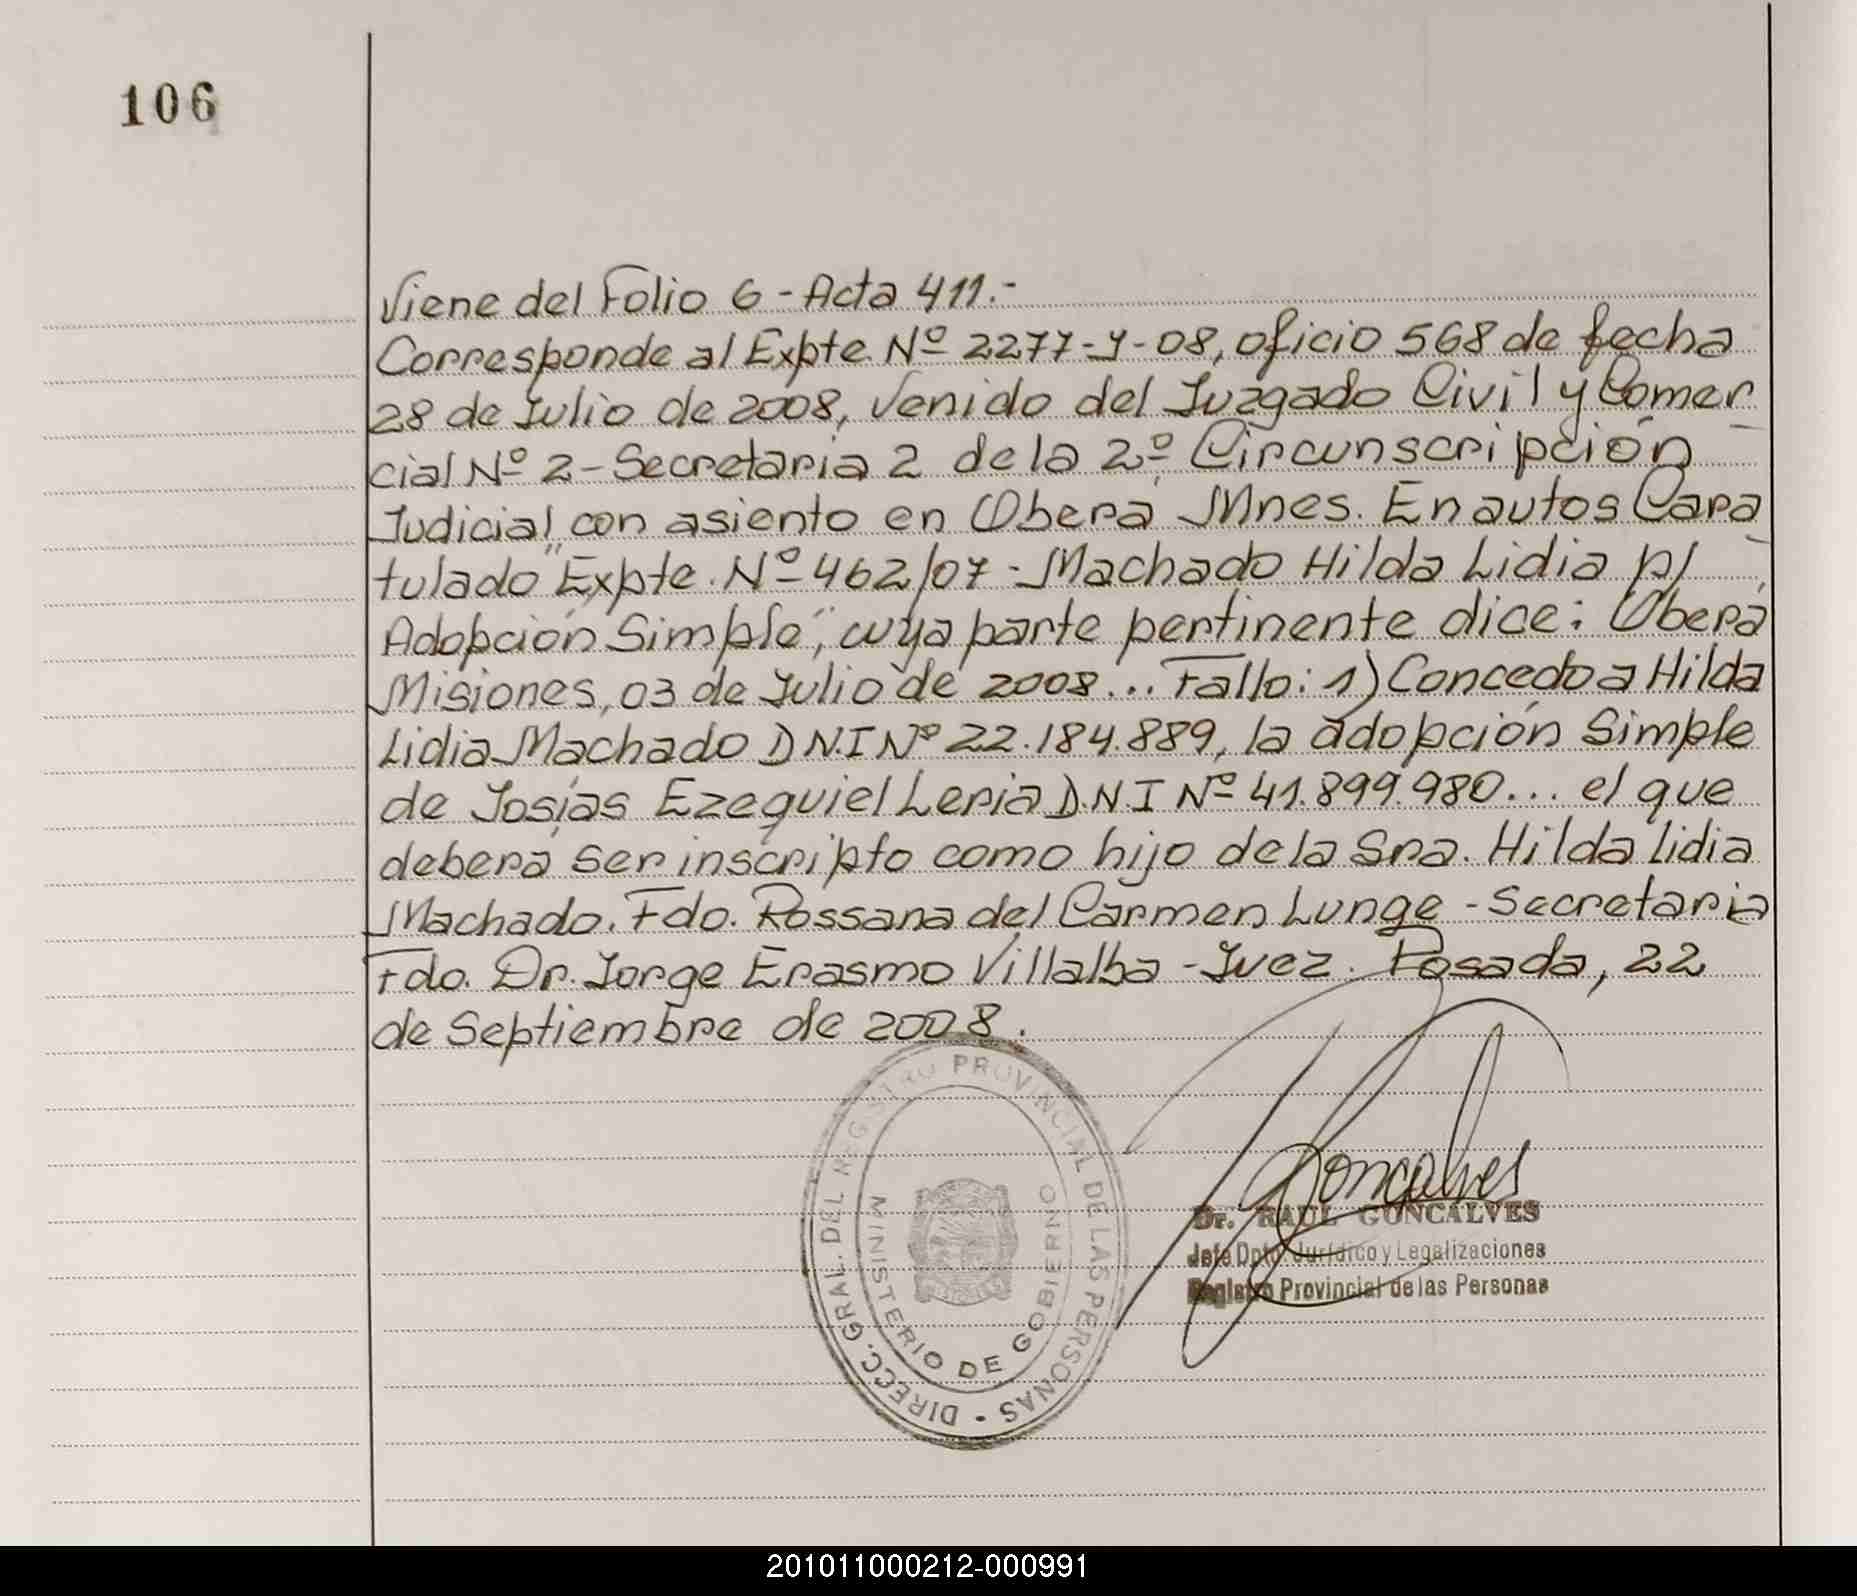 106
Viene del Folio 6 - Acta 411.-
Corresponde al Expte Nº 2277-J-08, oficio 568 de fecha
28 de Julio de 2008, Venido del Juzgado Civil y Comer
cial Nº 2 - Secretaria 2 de la 2º Circunscripción
Judicial con asiento en Oberá, Mnes. En autos Cara
tulado "Expte. Nº 462/07 - Machado Hilda Lidia p/
Adopción Simple", cuya parte pertinente dice: Oberá
Misiones, 03 de Julio de 2008... Fallo: 1) Concedo a Hilda
Lidia Machado D.N.I Nº 22.184.889, la adopción Simple
de Josías Ezequiel Leria D.N.I Nº 41.899.980... el que
deberá ser inscripto como hijo de la Sra. Hilda Lidia
Machado. Fdo. Rossana del Carmen Lunge - Secretaria
Fdo. Dr. Jorge Erasmo Villalba - Juez. Posada, 22
de Septiembre de 2008.
DIRECC. GRAL. DEL REGISTRO PROVINCIAL DE LAS PERSONAS
MINISTERIO DE GOBIERNO
Goncalves
Dr. RAUL GONCALVES
Jefe Dpto. Jurídico y Legalizaciones
Registro Provincial de las Personas
201011000212-000991